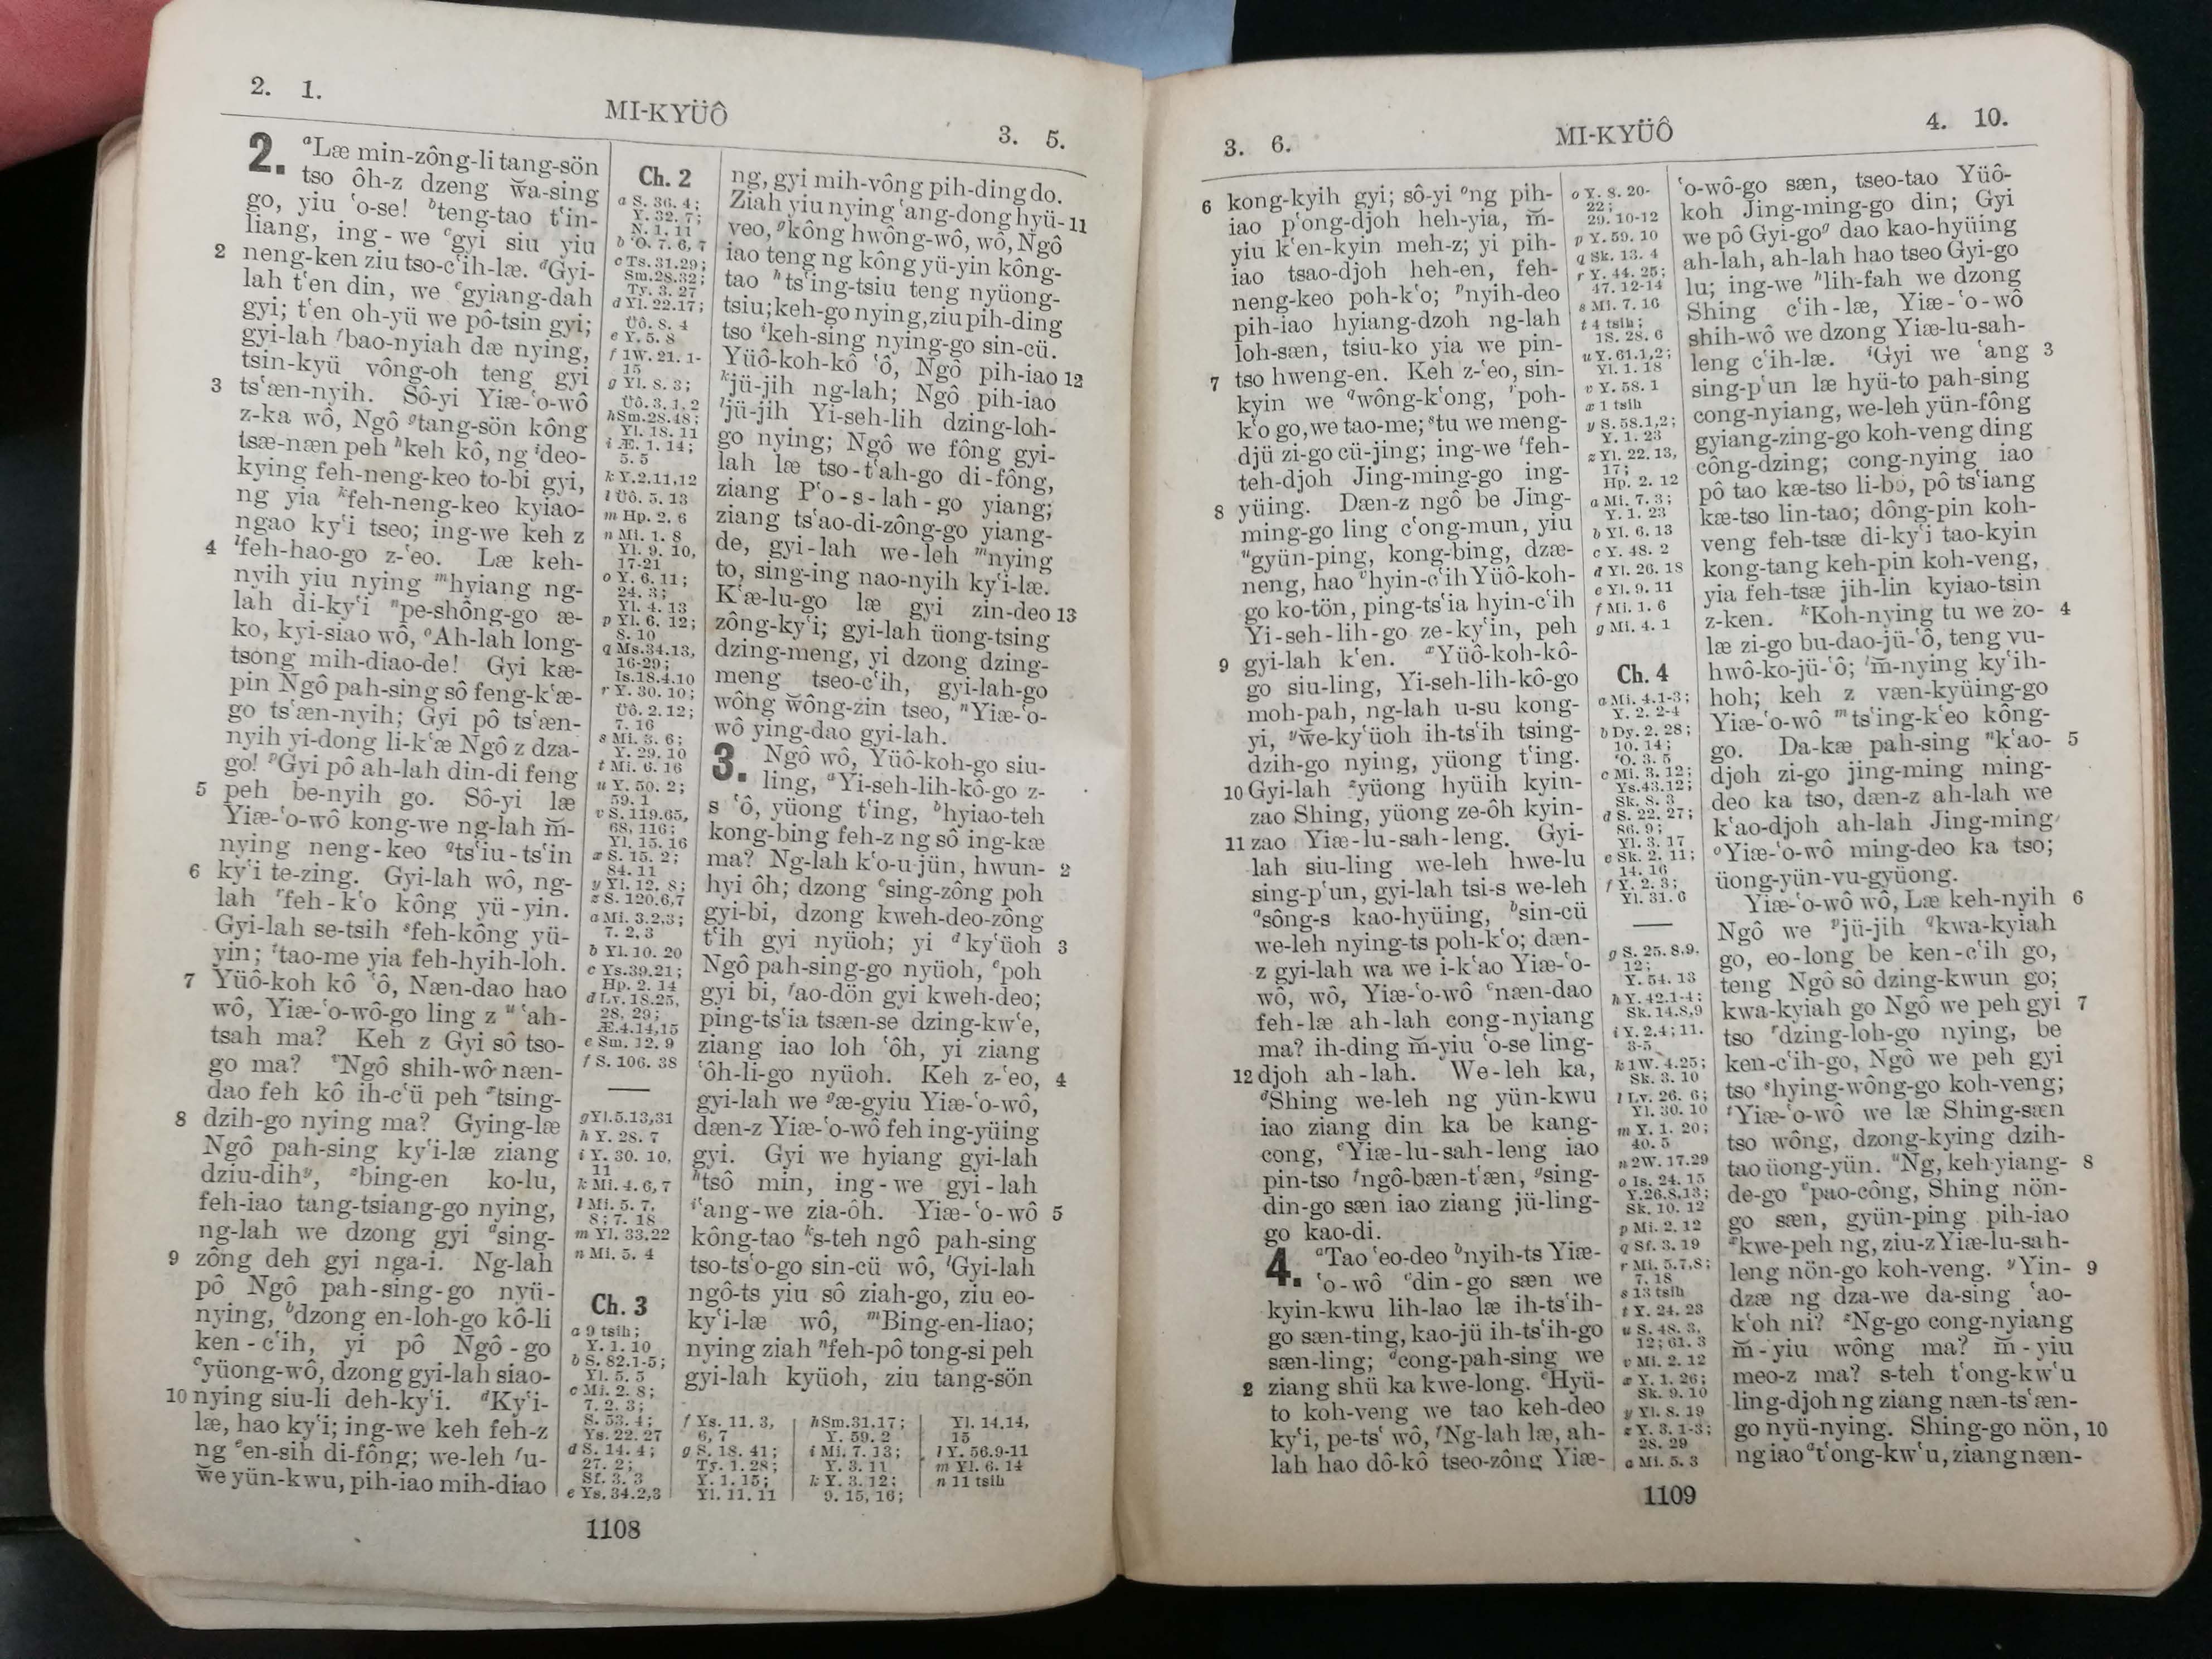 2. 1.
MI-KYÜÔ
3. 5.
2. ᵃLæ min-zông-li tang-sön
tso ôh-z dzeng w̌a-sing
go, yiu ʻo-se! ᵇteng-tao tʻin-
liang, ing-we ᶜgyi siu yiu
2 neng-ken ziu tso-cʻih-læ. ᵈGyi-
lah tʻen din, we ᵉgyiang-dah
gyi; tʻen oh-yü we pô-tsin gyi;
gyi-lah ᶠbao-nyiah dæ nying,
tsin-kyü vông-oh teng gyi
3 tsʻæn-nyih. Sô-yi Yiæ-ʻo-wô
z-ka wô, Ngô ᵍtang-sön kông
tsæ-næn peh ʰkeh kô, ng ⁱdeo-
kying feh-neng-keo to-bi gyi,
ng yia ᵏfeh-neng-keo kyiao-
ngao kyʻi tseo; ing-we keh z
4 ˡfeh-hao-go z-ʻeo. Læ keh-
nyih yiu nying ᵐhyiang ng-
lah di-kyʻi ⁿpe-shông-go æ-
ko, kyi-siao wô, ᵒAh-lah long-
tsong mih-diao-de! Gyi kæ-
pin Ngô pah-sing sô feng-kʻæ-
go tsʻæn-nyih; Gyi pô tsʻæn-
nyih yi-dong li-kʻæ Ngô z dza-
go! ᵖGyi pô ah-lah din-di feng
5 peh be-nyih go. Sô-yi læ
Yiæ-ʻo-wô kong-we ng-lah m̌-
nying neng-keo ᑫtsʻiu-tsʻin
6 kyʻi te-zing. Gyi-lah wô, ng-
lah ʳfeh-kʻo kông yü-yin.
Gyi-lah se-tsih ˢfeh-kông yü-
yin; ᵗtao-me yia feh-hyih-loh.
7 Yüô-koh kô ʻô, Næn-dao hao
wô, Yiæ-ʻo-wô-go ling z ᵘʻah-
tsah ma? Keh z Gyi sô tso-
go ma? ᵛNgô shih-wô næn-
dao feh kô ih-cʻü peh ˣtsing-
8 dzih-go nying ma? Gying-læ
Ngô pah-sing kyʻi-læ ziang
dziu-dihʸ, ᶻbing-en ko-lu,
feh-iao tang-tsiang-go nying,
ng-lah we dzong gyi ᵃsing-
9 zông deh gyi nga-i. Ng-lah
pô Ngô pah-sing-go nyü-
nying, ᵇdzong en-loh-go kô-li
ken-cʻih, yi pô Ngô-go
ᶜyüong-wô, dzong gyi-lah siao-
10 nying siu-li deh-kyʻi. ᵈKyʻi-
læ, hao kyʻi; ing-we keh feh-z
ng ᵉen-sih di-fông; we-leh ᶠu-
w̌e yün-kwu, pih-iao mih-diao
Ch. 2
a S. 36. 4;
Y. 32. 7;
N. 1. 11
b ʻO. 7. 6, 7
c Ts. 31. 29;
Sm. 28. 32;
Ty. 3. 27
d Yl. 22. 17;
Üô. 8. 4
e Y. 5. 8
f 1W. 21. 1-
15
g Yl. 8. 3;
Üô. 3. 1, 2
h Sm. 28. 48;
Yl. 18. 11
i Æ. 1. 14;
5. 5
k Y. 2. 11, 12
l Üô. 5. 13
m Hp. 2. 6
n Mi. 1. 8
Yl. 9. 10,
17-21
o Y. 6. 11;
24. 3;
Yl. 4. 13
p Yl. 6. 12;
8. 10
q Ms. 34. 13,
16-29;
Is. 18. 4. 10
r Y. 30. 10;
Üô. 2. 12;
7. 16
s Mi. 3. 6;
Y. 29. 10
t Mi. 6. 16
u Y. 50. 2;
59. 1
v S. 119. 65,
68, 116;
Yl. 15. 16
x S. 15. 2;
84. 11
y Yl. 12. 8;
z S. 120. 6, 7
a Mi. 3. 2, 3;
7. 2, 3
b Yl. 10. 20
c Ys. 39. 21;
Hp. 2. 14
d Lv. 18. 25,
28, 29;
Æ. 4. 14, 15
e Sm. 12. 9
f S. 106. 38
g Yl. 5. 13, 31
h Y. 28. 7
i Y. 30. 10,
11
k Mi. 4. 6, 7
l Mi. 5. 7,
8; 7. 18
m Yl. 33. 22
n Mi. 5. 4
Ch. 3
a 9 tsih;
Y. 1. 10
b S. 82. 1-5;
Yl. 5. 5
c Mi. 2. 8;
7. 2, 3;
S. 53. 4;
Ys. 22. 27
d S. 14. 4;
27. 2;
Sf. 3. 3
e Ys. 34. 2, 3
ng, gyi mih-vông pih-ding do.
Ziah yiu nying ʻang-dong hyü- 11
veo, ᵍkông hwông-wô, wô, Ngô
iao teng ng kông yü-yin kông-
tao ʰtsʻing-tsiu teng nyüong-
tsiu; keh-go nying, ziu pih-ding
tso ⁱkeh-sing nying-go sin-cü.
Yüô-koh-kô ʻô, Ngô pih-iao 12
ᵏjü-jih ng-lah; Ngô pih-iao
ˡjü-jih Yi-seh-lih dzing-loh-
go nying; Ngô we fông gyi-
lah læ tso-tʻah-go di-fông,
ziang Pʻo-s-lah-go yiang;
ziang tsʻao-di-zông-go yiang-
de, gyi-lah we-leh ᵐnying
to, sing-ing nao-nyih kyʻi-læ.
Kʻæ-lu-go læ gyi zin-deo 13
zông-kyʻi; gyi-lah üong-tsing
dzing-meng, yi dzong dzing-
meng tseo-cʻih, gyi-lah-go
wông w̌ông-zin tseo, ⁿYiæ-ʻo-
wô ying-dao gyi-lah.
3. Ngô wô, Yüô-koh-go siu-
ling, ᵃYi-seh-lih-kô-go z-
s ʻô, yüong tʻing, ᵇhyiao-teh
kong-bing feh-z ng sô ing-kæ
ma? Ng-lah kʻo-u-jün, hwun- 2
hyi ôh; dzong ᶜsing-zông poh
gyi-bi, dzong kweh-deo-zông
tʻih gyi nyüoh; yi ᵈkyʻüoh 3
Ngô pah-sing-go nyüoh, ᵉpoh
gyi bi, ᶠao-dön gyi kweh-deo;
ping-tsʻia tsæn-se dzing-kwʻe,
ziang iao loh ʻôh, yi ziang
ʻôh-li-go nyüoh. Keh z-ʻeo, 4
gyi-lah we ᵍæ-gyiu Yiæ-ʻo-wô,
dæn-z Yiæ-ʻo-wô feh ing-yüing
gyi. Gyi we hyiang gyi-lah
ʰtsô min, ing-we gyi-lah
ⁱʻang-we zia-ôh. Yiæ-ʻo-wô 5
kông-tao ᵏs-teh ngô pah-sing
tso-tsʻo-go sin-cü wô, ˡGyi-lah
ngô-ts yiu sô ziah-go, ziu eo-
kyʻi-læ wô, ᵐBing-en-liao;
nying ziah ⁿfeh-pô tong-si peh
gyi-lah kyüoh, ziu tang-sön
f Ys. 11. 3,
6, 7
g S. 18. 41;
Ty. 1. 28;
Y. 1. 15;
Yl. 11. 11
h Sm. 31. 17;
Y. 59. 2
i Mi. 7. 13;
Y. 3. 11
k Y. 3. 12;
9. 15, 16;
Yl. 14. 14,
15
l Y. 56. 9-11
m Yl. 6. 14
n 11 tsih
1108
3. 6.
MI-KYÜÔ
4. 10.
6 kong-kyih gyi; sô-yi ᵒng pih-
iao pʻong-djoh heh-yia, m̌-
yiu kʻen-kyin meh-z; yi pih-
iao tsao-djoh heh-en, feh-
neng-keo poh-kʻo; ᵖnyih-deo
pih-iao hyiang-dzoh ng-lah
loh-sæn, tsiu-ko yia we pin-
7 tso hweng-en. Keh z-ʻeo, sin-
kyin we ᑫwông-kʻong, ʳpoh-
kʻo go, we tao-me; ˢtu we meng-
djü zi-go cü-jing; ing-we ᵗfeh-
teh-djoh Jing-ming-go ing-
8 yüing. Dæn-z ngô be Jing-
ming-go ling cʻong-mun, yiu
ᵘgyün-ping, kong-bing, dzæ-
neng, hao ᵛhyin-cʻih Yüô-koh-
go ko-tön, ping-tsʻia hyin-cʻih
Yi-seh-lih-go ze-kyʻin, peh
9 gyi-lah kʻen. ˣYüô-koh-kô-
go siu-ling, Yi-seh-lih-kô-go
moh-pah, ng-lah u-su kong-
yi, ʸw̌e-kyʻüoh ih-tsʻih tsing-
dzih-go nying, yüong tʻing.
10 Gyi-lah ᶻyüong hyüih kyin-
zao Shing, yüong ze-ôh kyin-
11 zao Yiæ-lu-sah-leng. Gyi-
lah siu-ling we-leh hwe-lu
sing-pʻun, gyi-lah tsi-s we-leh
ᵃsông-s kao-hyüing, ᵇsin-cü
we-leh nying-ts poh-kʻo; dæn-
z gyi-lah wa we i-kʻao Yiæ-ʻo-
wô, wô, Yiæ-ʻo-wô ᶜnæn-dao
feh-læ ah-lah cong-nyiang
ma? ih-ding m̌-yiu ʻo-se ling-
12 djoh ah-lah. We-leh ka,
ᵈShing we-leh ng yün-kwu
iao ziang din ka be kang-
cong, ᵉYiæ-lu-sah-leng iao
pin-tso ᶠngô-bæn-tʻæn, ᵍsing-
din-go sæn iao ziang jü-ling-
go kao-di.
4. ᵃTao ʻeo-deo ᵇnyih-ts Yiæ-
ʻo-wô ᶜdin-go sæn we
kyin-kwu lih-lao læ ih-tsʻih-
go sæn-ting, kao-jü ih-tsʻih-go
sæn-ling; ᵈcong-pah-sing we
2 ziang shü ka kwe-long. ᵉHyü-
to koh-veng we tao keh-deo
kyʻi, pe-tsʻ wô, ᶠNg-lah læ, ah-
lah hao dô-kô tseo-zông Yiæ-
o Y. 8. 20-
22;
29. 10-12
p Y. 59. 10
q Sk. 13. 4
r Y. 44. 25;
47. 12-14
s Mi. 7. 16
t 4 tsih;
1S. 28. 6
u Y. 61. 1, 2;
Yl. 1. 18
v Y. 58. 1
x 1 tsih
y S. 58. 1, 2;
Y. 1. 23
z Yl. 22. 13,
17;
Hp. 2. 12
a Mi. 7. 3;
Y. 1. 23
b Yl. 6. 13
c Y. 48. 2
d Yl. 26. 18
e Yl. 9. 11
f Mi. 1. 6
g Mi. 4. 1
Ch. 4
a Mi. 4. 1-3;
Y. 2. 2-4
b Dy. 2. 28;
10. 14;
ʻO. 3. 5
c Mi. 3. 12;
Ys. 43. 12;
Sk. 8. 3
d S. 22. 27;
86. 9;
Yl. 3. 17
e Sk. 2. 11;
14. 16
f Y. 2. 3;
Yl. 31. 6
g S. 25. 8, 9,
12;
Y. 54. 13
h Y. 42. 1-4;
Sk. 14. 8, 9
i Y. 2. 4; 11.
3-5
k 1W. 4. 25;
Sk. 3. 10
l Lv. 26. 6;
Yl. 30. 10
m Y. 1. 20;
40. 5
n 2W. 17. 29
o Is. 24. 15
Y. 26. 8, 13;
Sk. 10. 12
p Mi. 2. 12
q Sf. 3. 19
r Mi. 5. 7, 8;
7. 18
s 13 tsih
t Y. 24. 23
u S. 48. 3,
12; 61. 3
v Mi. 2. 12
x Y. 1. 26;
Sk. 9. 10
y Yl. 8. 19
z Y. 3. 1-3;
28. 29
a Mi. 5. 3
ʻo-wô-go sæn, tseo-tao Yüô-
koh Jing-ming-go din; Gyi
we pô Gyi-goᵍ dao kao-hyüing
ah-lah, ah-lah hao tseo Gyi-go
lu; ing-we ʰlih-fah we dzong
Shing cʻih-læ, Yiæ-ʻo-wô
shih-wô we dzong Yiæ-lu-sah-
leng cʻih-læ. ⁱGyi we ʻang 3
sing-pʻun læ hyü-to pah-sing
cong-nyiang, we-leh yün-fông
gyiang-zing-go koh-veng ding
công-dzing; cong-nying iao
pô tao kæ-tso li-bo, pô tsʻiang
kæ-tso lin-tao; dông-pin koh-
veng feh-tsæ di-kyʻi tao-kyin
kong-tang keh-pin koh-veng,
yia feh-tsæ jih-lin kyiao-tsin
z-ken. ᵏKoh-nying tu we zo- 4
læ zi-go bu-dao-jü-ʻô, teng vu-
hwô-ko-jü-ʻô; ˡm̌-nying kyʻih-
hoh; keh z væn-kyüing-go
Yiæ-ʻo-wô ᵐtsʻing-kʻeo kông-
go. Da-kæ pah-sing ⁿkʻao- 5
djoh zi-go jing-ming ming-
deo ka tso, dæn-z ah-lah we
kʻao-djoh ah-lah Jing-ming
ᵒYiæ-ʻo-wô ming-deo ka tso;
üong-yün-vu-gyüong.
Yiæ-ʻo-wô wô, Læ keh-nyih 6
Ngô we ᵖjü-jih ᑫkwa-kyiah
go, eo-long be ken-cʻih go,
teng Ngô sô dzing-kwun go;
kwa-kyiah go Ngô we peh gyi 7
tso ʳdzing-loh-go nying, be
ken-cʻih-go, Ngô we peh gyi
tso ˢhying-wông-go koh-veng;
ᵗYiæ-ʻo-wô we læ Shing-sæn
tso wông, dzong-kying dzih-
tao üong-yün. ᵘNg, keh-yiang- 8
de-go ᵛpao-công, Shing nön-
go sæn, gyün-ping pih-iao
ˣkwe-peh ng, ziu-z Yiæ-lu-sah-
leng nön-go koh-veng. ʸYin- 9
dzæ ng dza-we da-sing ʻao-
kʻoh ni? ᶻNg-go cong-nyiang
m̌-yiu wông ma? m̌-yiu
meo-z ma? s-teh tʻong-kwʻu
ling-djoh ng ziang næn-tsʻæn-
go nyü-nying. Shing-go nön, 10
ng iao ᵃtʻong-kwʻu, ziang næn-
1109